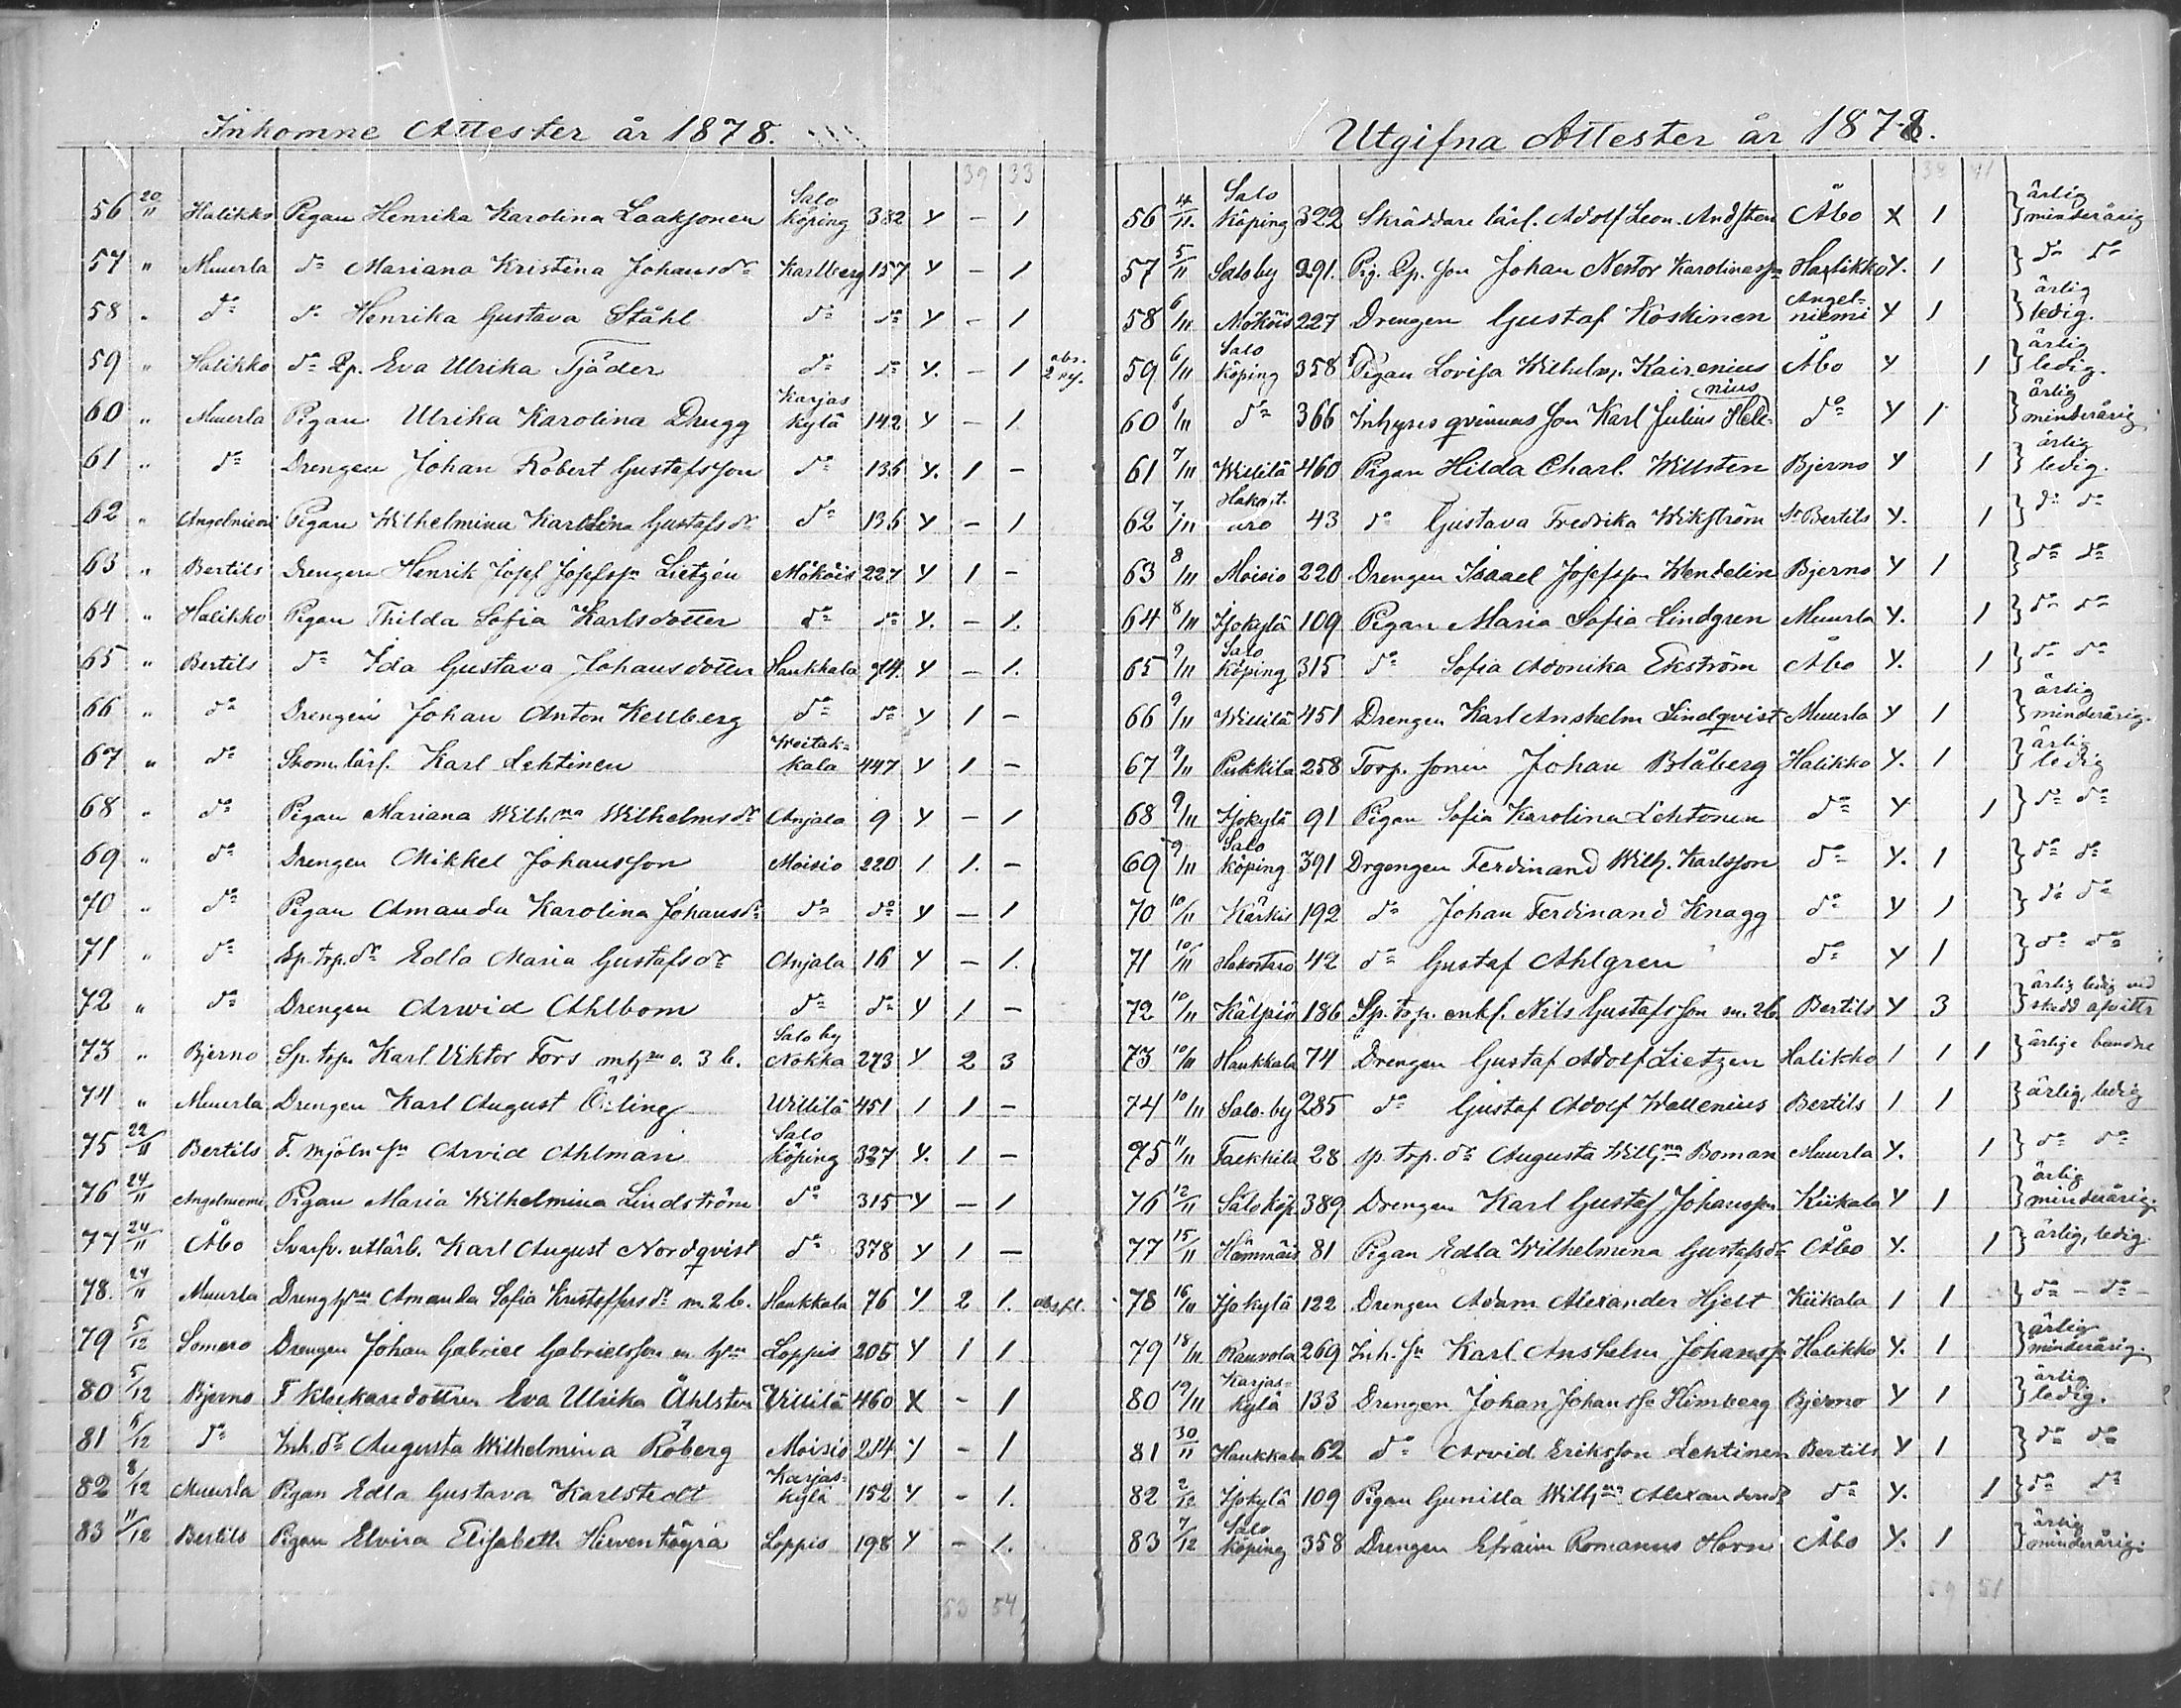 Inkomne Attester år 1878.
39 33
56 20/11 Halikko Pigan Henrika Karolina Laaksonen Salo köping 382 Y – 1
57 " Muurla do Mariana Kristina Johansdr Karlberg 157 Y – 1
58 " do do Henrika Gustava Ståhl do do Y – 1
59 " Halikko do Qp. Eva Ulrika Tjäder do do Y. – 1 abs. 2 ny.
60 " Muurla Pigan Ulrika Karolina Drugg Karjaskylä 142 Y – 1
61 " do Drengen Johan Robert Gustafsson do 136 Y. 1 –
62 " Angelniemi Pigan Wilhelmina Karolina Gustafsdr do 136 Y – 1
63 " Bertils Drengen Henrik Josef Josefsson Lietzén Mököis 227 Y 1 –
64 " Halikko Pigan Thilda Sofia Karlsdotter do do Y. – 1.
65 " Bertils do Ida Gustava Johansdotter Haukkala 74. Y – 1.
66 " do Drengen Johan Anton Kellberg do do Y 1 –
67 " do Skom. lärl. Karl Lehtinen Weitakkala 447 Y 1 –
68 " do Pigan Mariana Wilhna Wilhelmsdr Anjala 9 Y – 1
69 " do Drengen Mikkel Johansson Moisio 220 1 1. –
70 " do Pigan Amanda Karolina Johansdr do do Y – 1
71 " do Sp. trp. dr Edla Maria Gustafsdr Anjala 16 Y – 1.
72 " do Drengen Arwid Ahlbom do do Y 1 –
73 " Bjerno Sp. trp. Karl Viktor Fors m hu o. 3 b. Salo by Nokka 273 Y 2 3
74 " Muurla Drengen Karl August Öhling Willilä 451 1 1 –
75 22/11 Bertils F. mjöln. sn Arvid Ahlman Salo köping 327 Y. 1 –
76 24/11 Angelniemi Pigan Maria Wilhelmina Lindström do 315 Y – 1
77 24/11 Åbo Svarfv. utlärl. Karl August Nordqvist do 378 Y 1 –
78. 24/11 Muurla Dreng hun Amanda Sofia Kristoffersdr m. 2 b. Haukkala 76 Y 2 1.
79 5/12 Somero Drengen Johan Gabriel Gabrielsson m hu Loppis 205 Y 1 1
80 5/12 Bjerno F Klockaredottren Eva Ulrika Åhlsten Villilä 460 X – 1
81 6/12 do Inh. dr Augusta Wilhelmina Röberg Moisio 214 Y – 1
82 8/12 Muurla Pigan Edla Gustava Karlstedt Karjaskylä 152 Y – 1.
83 11/12 Bertils Pigan Elvira Elisabeth Hirventöyrä Loppis 198 Y – 1.
53 54
Utgifna Attester år 1878.
38 41
56 4/11. Salo Köping 322 Skräddare lärl. Adolf Leon. Andsten Åbo X 1 } ärlig minderårig
57 5/11 Salo by 291. Pig. Qp. son Johan Nestor Karolinasson Halikko Y. 1 } do do
58 6/11 Mököis 227 Drengen Gustaf Koskinen Angelniemi Y 1 } ärlig ledig.
59 6/11 Salo köping 358 Pigan Lovisa Wilhelm. Kairenius Åbo Y 1 } ärlig ledig.
60 6/11 do 366 Inhyses qvinnas son Karl Julius Helenius do Y 1 } ärlig minderårig
61 7/11 Willilä 460 Pigan Hilda Charl. Willsten Bjerno Y 1 } ärlig ledig.
62 7/11 Hakostaro 43 do Gustava Fredrika Wikström St Bertils Y. 1 } do do
63 8/11 Moisio 220 Drengen Isaael Josefsson Wendelin Bjerno Y 1 } do do
64 8/11 Isokylä 109 Pigan Maria Sofia Lindgren Muurla Y. 1 } do do
65 9/11 Salo köping 315 do Sofia Advnika Ekström Åbo Y. 1 } do do
66 9/11 Willilä 451 Drengen Karl Anshelm Lindqvist Muurla Y 1 } ärlig minderårig.
67 9/11 Pukkila 258 Torp. sonen Johan Blåberg Halikko Y. 1 } ärlig ledig
68 9/11 Isokylä 91 Pigan Sofia Karolina Lehtonen do Y 1 } do do
69 9/11 Salo köping 391 Drgengen Ferdinand Wilh. Karlsson do Y. 1 } do do
70 10/11 Kärkis 192 do Johan Ferdinand Knagg do Y 1 } do do
71 10/11 Hakostaro 42 do Gustaf Ahlgren do Y 1 } do do
72 10/11 Kälpiö 186 Sp. trp. enkl. Nils Gustafsson m. 2 b. Bertils Y 3 } ärlig ledig vid skedd afvittr
73 10/11 Haukkala 74 Drengen Gustaf Adolf Lietzen Halikko 1 1 1 } ärlige bundne
74 10/11 Salo. by 285 do Gustaf Adolf Wallenius Bertils 1 1 } ärlig, ledig
75 11/11 Talkkila 28 sp. trp. dr Augusta Wilhna Boman Muurla Y. 1 } do do
76 12/11 Salo köp. 389 Drengen Karl Gustaf Johansson Kiikala Y 1 } ärlig minderårig.
77 15/11 Hämmäis 81 Pigan Edla Wilhelmina Gustafsdr Åbo Y. 1 } ärlig, ledig.
78 16/11 Isokylä 122 Drengen Adam Alexander Hjelt Kiikala 1 1 } do – do –
79 18/11 Rauvola 269 Inh. sn Karl Anshelm Johansson Halikko Y. 1 } ärlig minderårig.
80 19/11 Karjaskylä 133 Drengen Johan Johansson Himberg Bjerno Y 1 } ärlig ledig.
81 30/11 Haukkala 62 do Arvid Eriksson Lehtinen Bertils Y 1 } do do
82 2/12 Isokylä 109 Pigan Gunilla Wilhna Alexandersdr do Y. 1 } do do
83 7/12 Salo köping 358 Drengen Efraim Romanus Horn Åbo Y. 1 } ärlig minderårig.
59 51